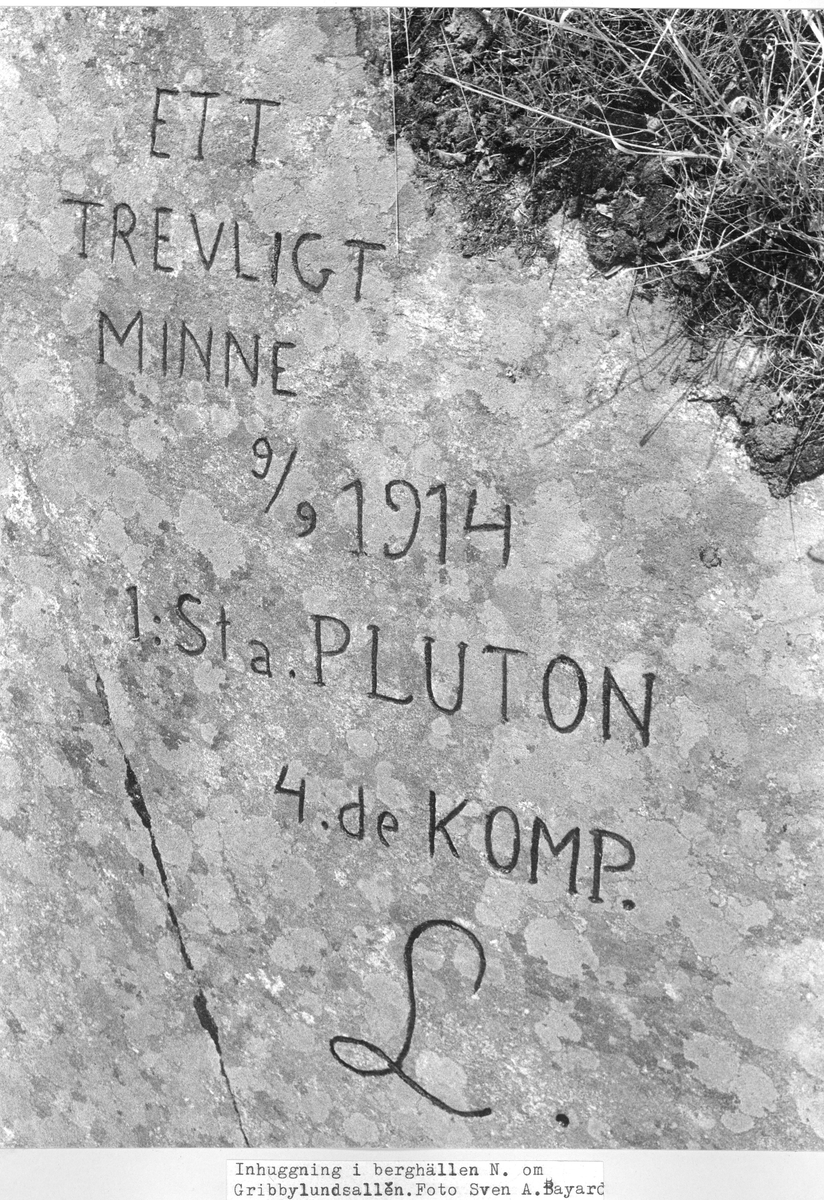 ETT
TREVLIGT
MINNE
9/9 1914
1:Sta. PLUTON
4.de KOMP.
L.
Inhuggning i berghällen N. om
Gribbylundsallén.Foto Sven A.Bayard